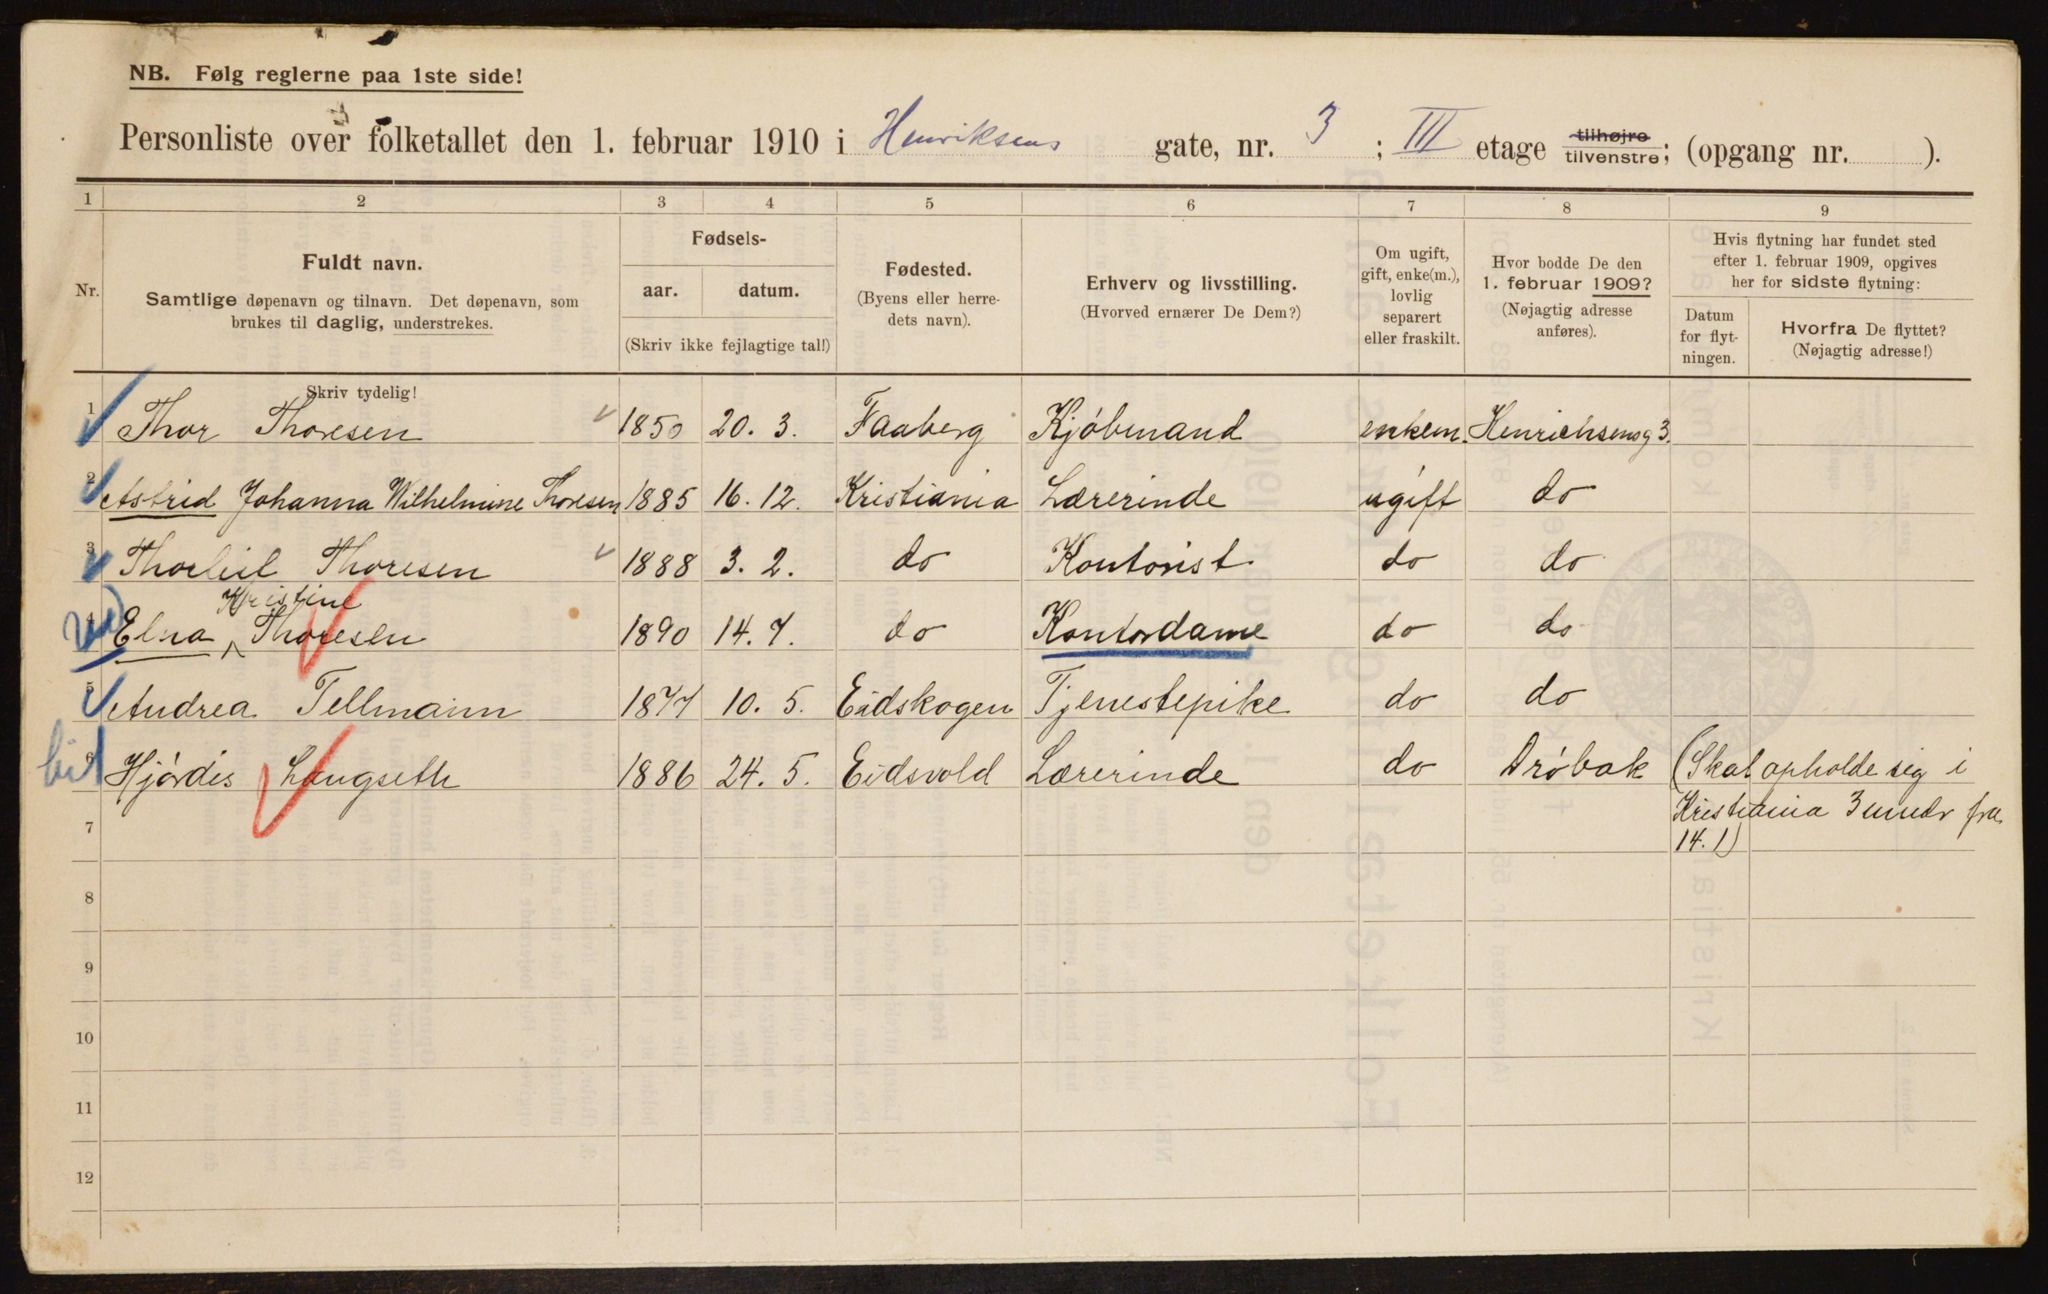 NB. Følg reglerne paa 1ste side!
Personliste over folketallet den 1. februar 1910 i Henriksens gate, nr. 3 ; III etage tilhøjre tilvenstre; (opgang nr. ).
1 2 3 4 5 6 7 8 9
Nr.
Fuldt navn.
Samtlige døpenavn og tilnavn. Det døpenavn, som
brukes til daglig, understrekes.
Fødsels-
aar. datum.
(Skriv ikke fejlagtige tal!)
Fødested.
(Byens eller herre-
dets navn).
Erhverv og livsstilling.
(Hvorved ernærer De Dem?)
Om ugift,
gift, enke(m.),
lovlig
separert
eller fraskilt.
Hvor bodde De den
1. februar 1909?
(Nøjagtig adresse
anføres).
Hvis flytning har fundet sted
efter 1. februar 1909, opgives
her for sidste flytning:
Datum
for flyt-
ningen.
Hvorfra De flyttet?
(Nøjagtig adresse!)
Skriv tydelig!
1 Thor Thoresen 1850 20. 3. Faaberg Kjøbmand enkem. Henrichsensg 3.
2 Astrid Johanna Wilhelmine Thoresen 1885 16. 12. Kristiania Lærerinde ugift do
3 Thorleif Thoresen 1888 3. 2. do Kontorist do do
Kristine
4 Elna Thoresen 1890 14. 7. do Kontordame do do
5 Andrea Tellmann 1877 10. 5. Eidskogen Tjenestepike do do
6 Hjørdis Langseth 1886 24. 5. Eidsvold Lærerinde do Drøbak (Skal opholde sig i
7 Kristiania 3 mndr fra
14. 1)
8
9
10
11
12